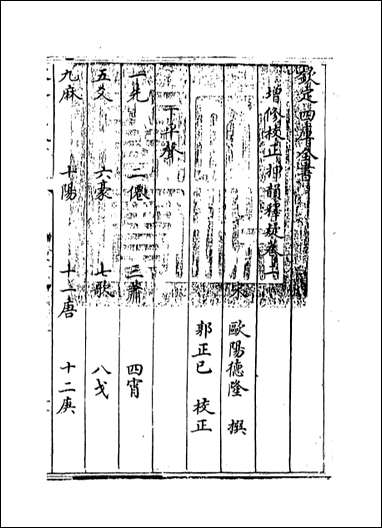 欽定四庫全書
增修校正押韻釋疑卷二
宋 歐陽德隆 撰
郭正己 校正
下平聲
一先 二僊 三蕭 四宵
五爻 六豪 七歌 八戈
九麻 十陽 十一唐 十二庚